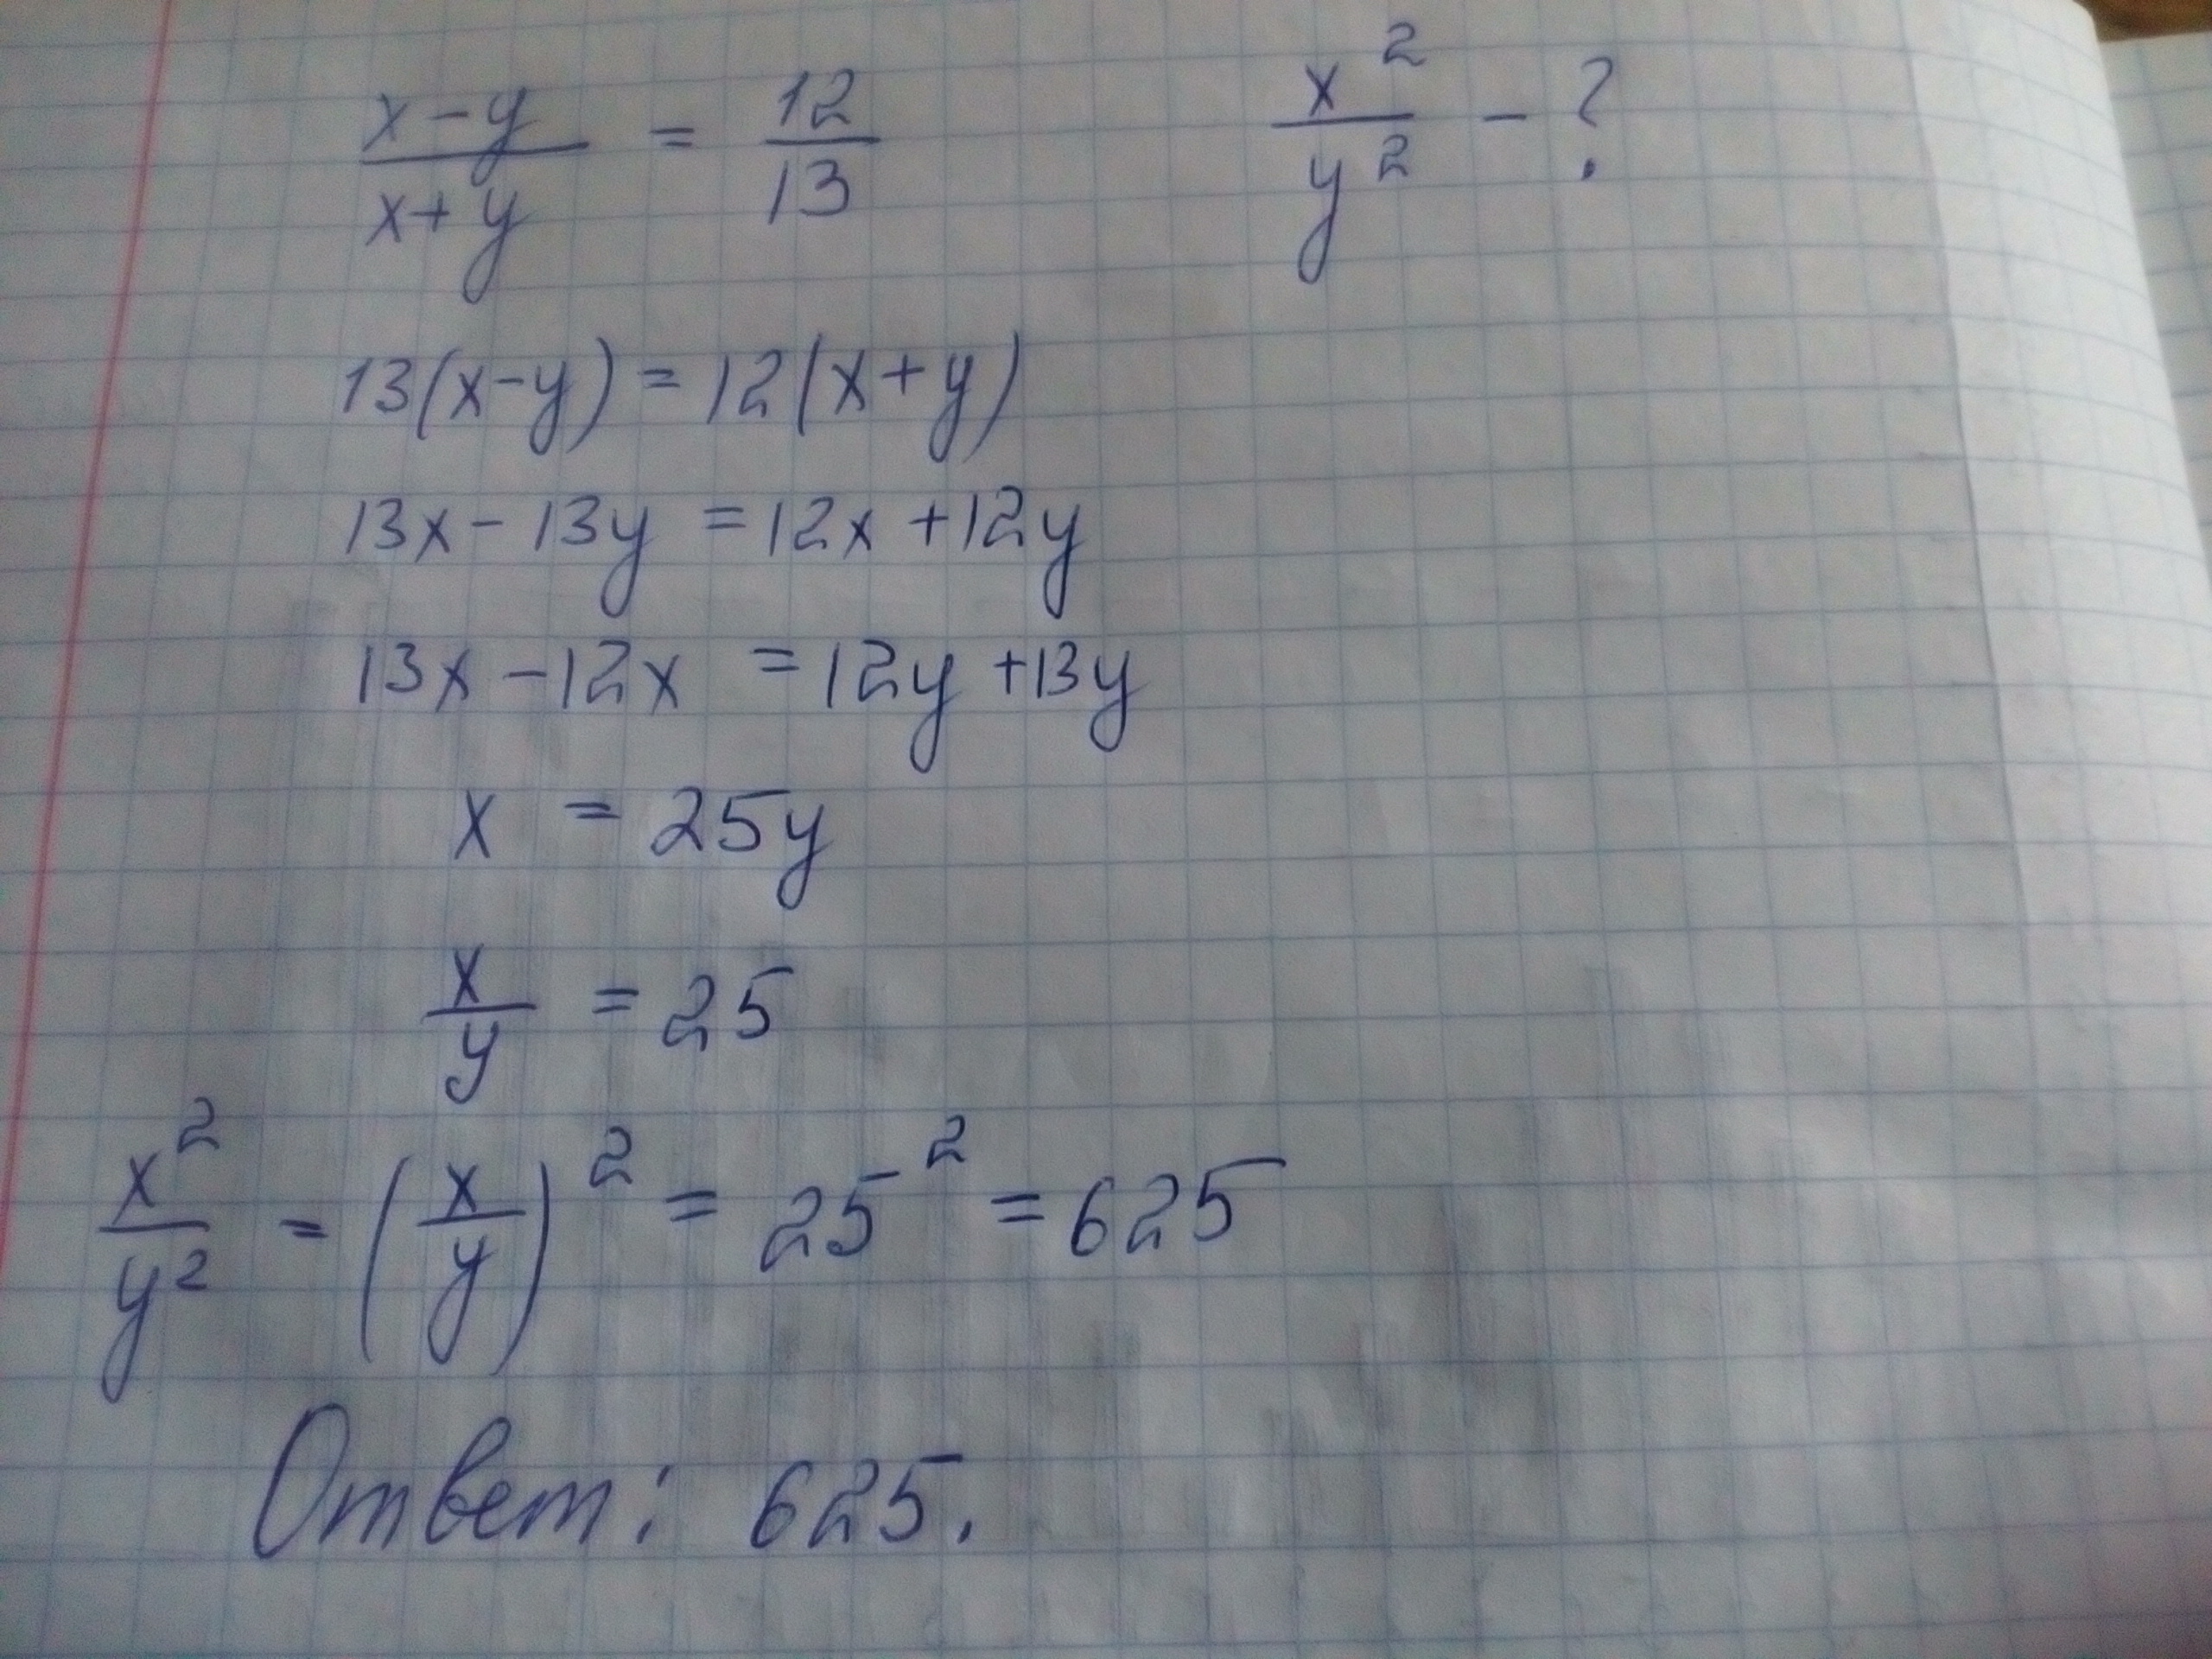 (x-y)/(x+y) = 12/13    x²/y² - ?
13(x-y) = 12(x+y)
13x - 13y = 12x + 12y
13x - 12x = 12y + 13y
x = 25y
x/y = 25
x²/y² = (x/y)² = 25² = 625
Ответ: 625.